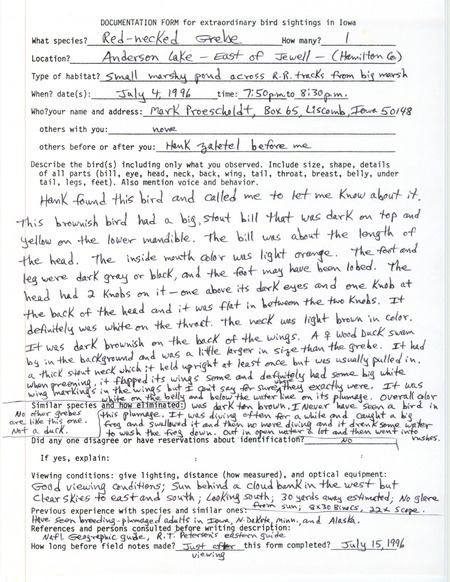 DOCUMENTATION FORM for extraordinary bird sightings in Iowa
What species? Red-necked Grebe How many? 1
Location? Anderson Lake - East of Jewell - (Hamilton Co)
Type of habitat? small marshy pond across R.R. tracks from big marsh
When? date(s): July 4, 1996 time: 7:50 pm to 8:30 pm.
Who? your name and address: Mark Proescholdt, Box 65, Liscomb, Iowa 50148
others with you: none
others before or after you: Hank Zaletel before me
Describe the bird(s) including only what you observed. Include size, shape, details
of all parts (bill, eye, head, neck, back, wing, tail, throat, breast, belly, under
tail, legs, feet). Also mention voice and behavior.
Hank found this bird and called me to let me know about it.
This brownish bird had a big, stout bill that was dark on top and
yellow on the lower mandible. The bill was about the length of
the head. The inside mouth color was light orange. The foot and
leg were dark gray or black, and the foot may have been lobed. The
head had 2 knobs on it - one above its dark eyes and one knob at
the back of the head and it was flat in between the two knobs. It
definitely was white on the throat. The neck was light brown in color.
It was dark brownish on the back of the wings. A ♀ wood duck swam
by in the background and was a little larger in size than the grebe. It had
a thick stout neck which it held upright at least once but was usually pulled in.
When preening, it flapped its wings some and definitely had some big white
wing markings in the wings but I can't say for sure where they exactly were. It was
white on the belly and below the water line on its plumage. Overall color
Similar species and how eliminated: was dark ten brown. I never have seen a bird in
No other grebes this plumage. It was diving often for a while and caught a big
are like this one. frog and swallowed it and then no more diving and it drank some water
Not a duck. to wash the frog down. Out in open water a lot and then went into
rushes.
Did any one disagree or have reservations about identification? No
If yes, explain:
Viewing conditions: give lighting, distance (how measured), and optical equipment:
Good viewing conditions; Sun behind a cloud bank in the west but
clear skies to east and south; Looking south; 30 yards away estimated; No glare
from sun; 8x30 Binocs, 22x scope.
Previous experience with species and similar ones:
Have seen breeding-plumaged adults in Iowa, N. Dakota, Minn., and Alaska.
References and persons consulted before writing description:
Nat'l Geographic guide, R.T. Peterson's eastern guide
How long before field notes made? Just after viewing this form completed? July 15, 1996